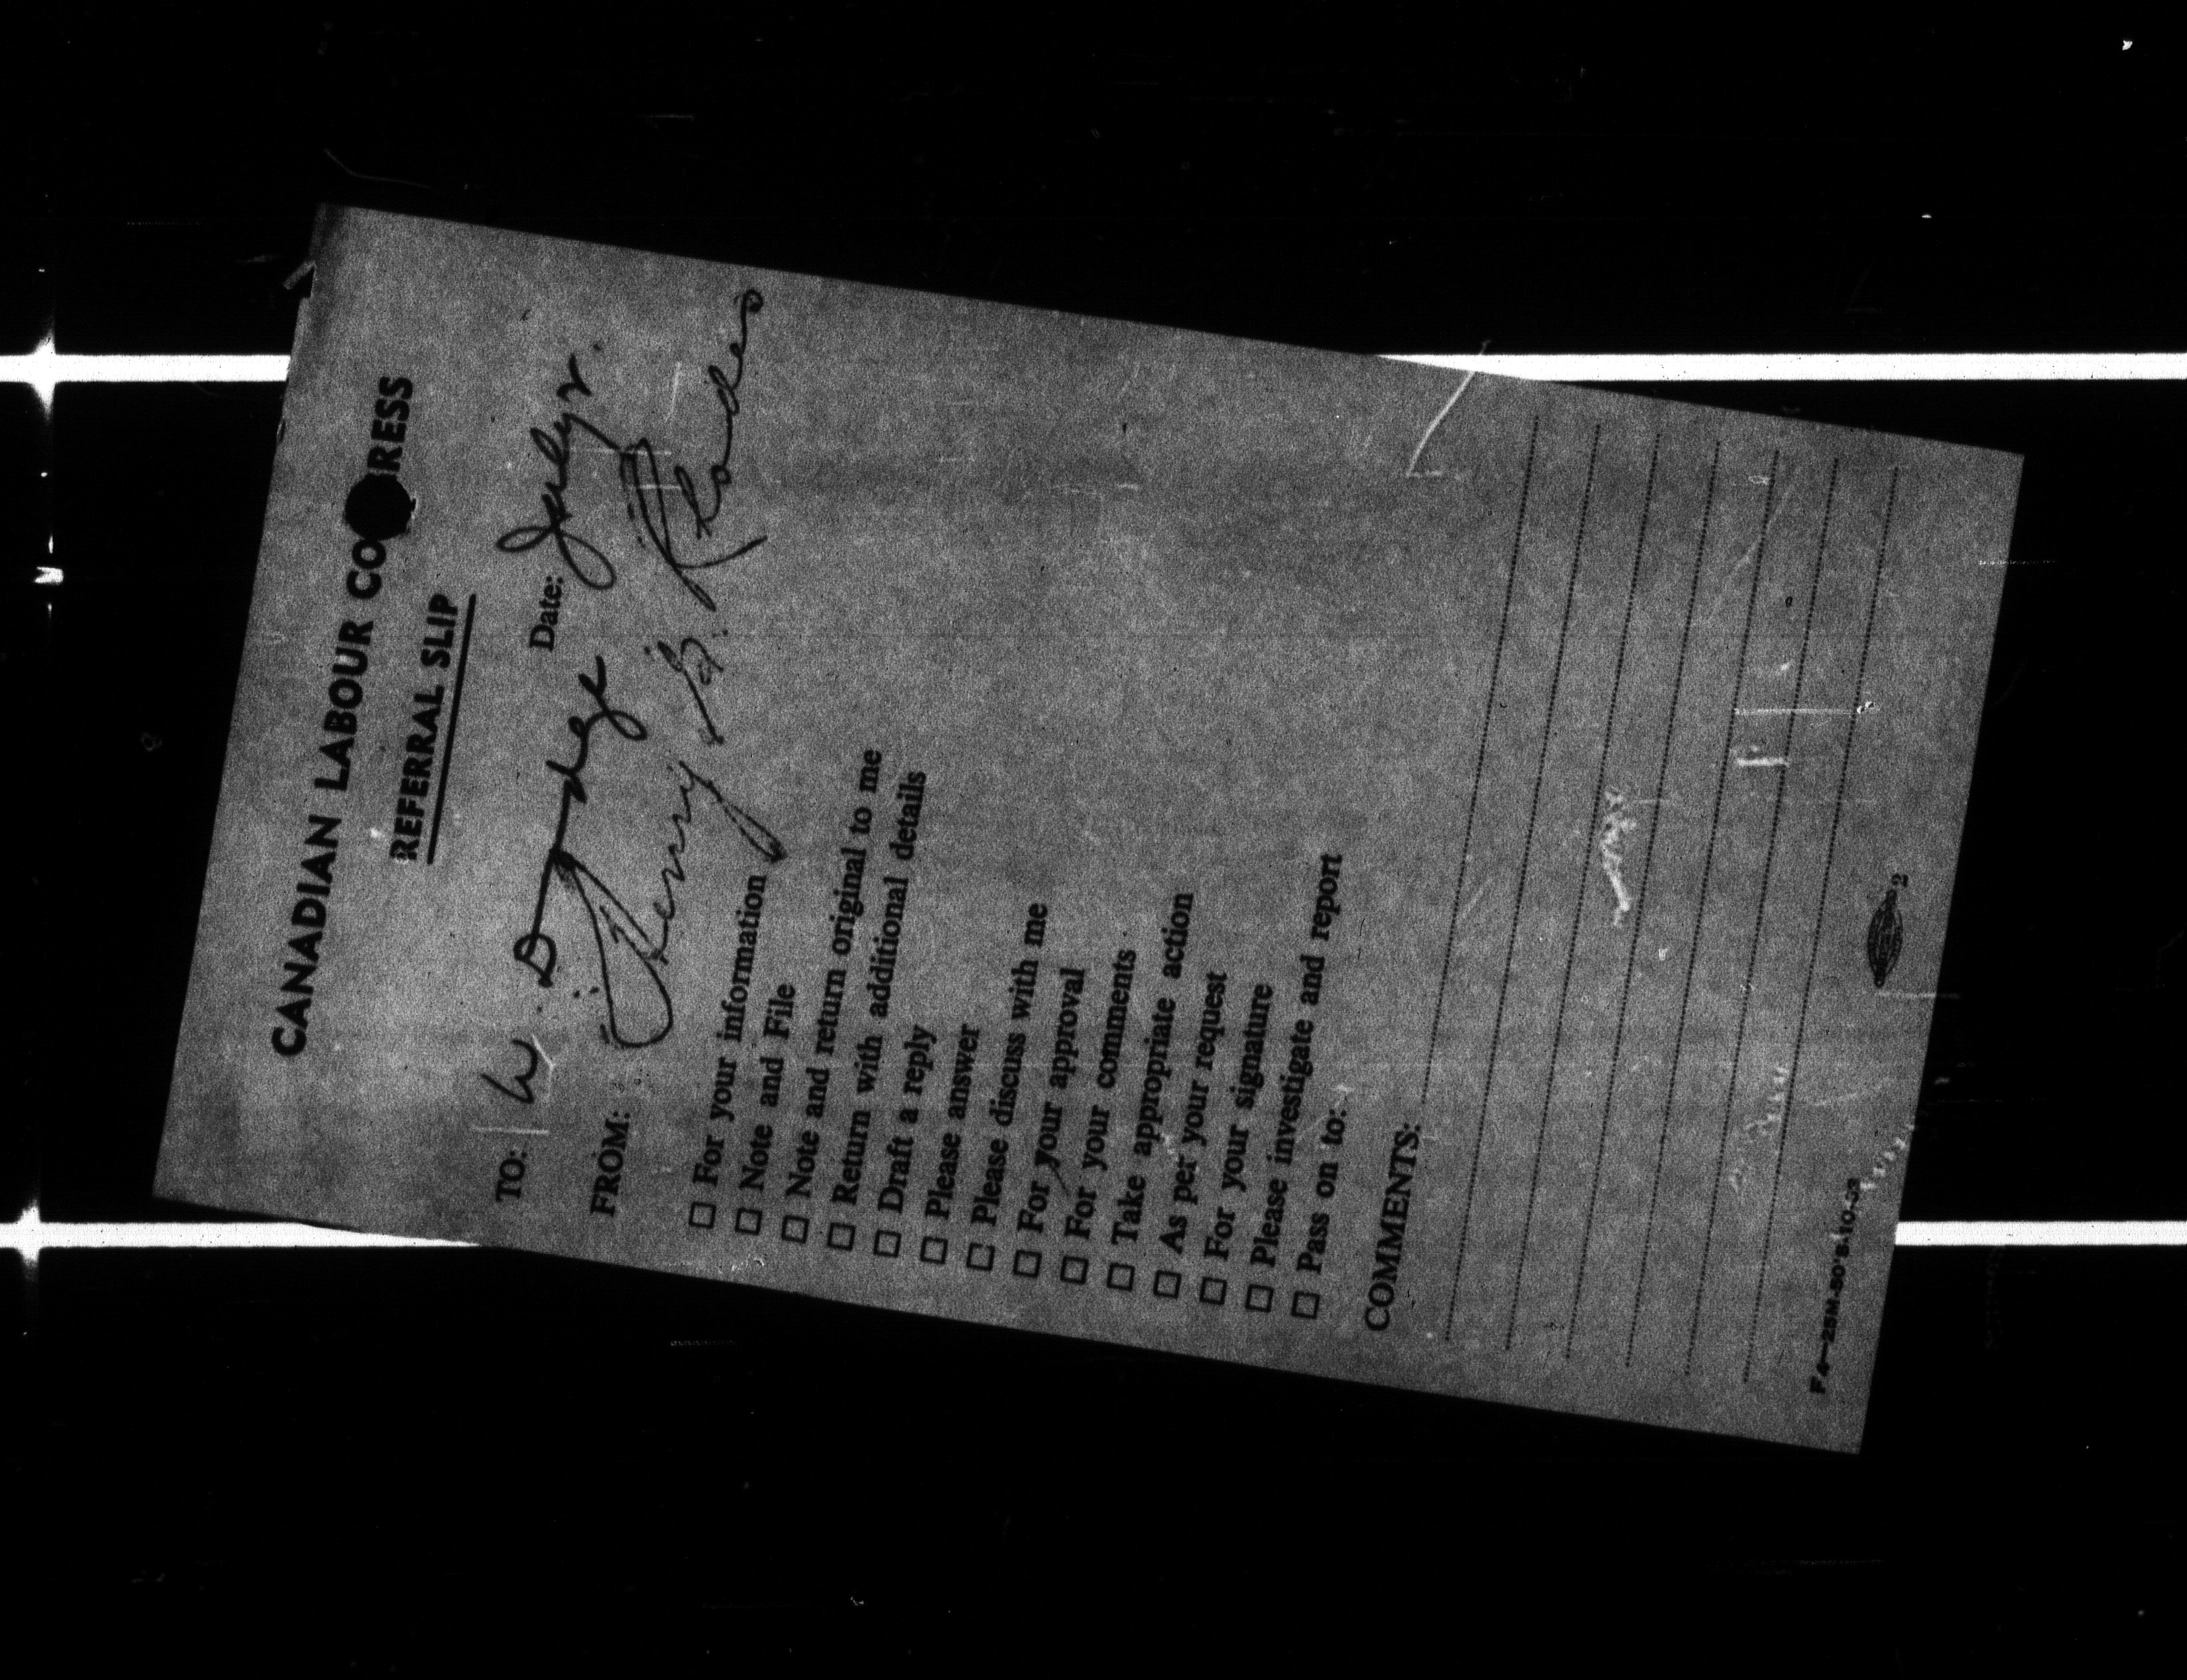 CANADIAN LABOUR CO RESS
REFERRAL SLIP
TO: W. Dodge Date:
FROM: Henry G. Rhodes
☐ For your information
☐ Note and File
☐ Note and return original to me
☐ Return with additional details
☐ Draft a reply
☐ Please answer
☐ Please discuss with me
☐ For your approval
☐ For your comments
☐ Take appropriate action
☐ As per your request
☐ For your signature
☐ Please investigate and report
☐ Pass on to:
COMMENTS:
2